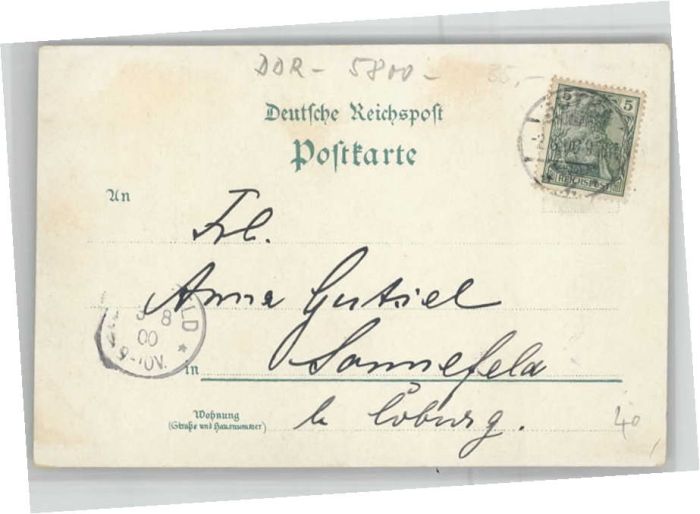 DDR - 5800 -
35,-
Deutsche Reichspost
Postkarte
5 5
REICHSPOST
An
Frl.
Anna Gutsiel
8
00
9-10V.
in Sonnefeld
b Coburg.
Wohnung
(Straße und Hausnummer)
40